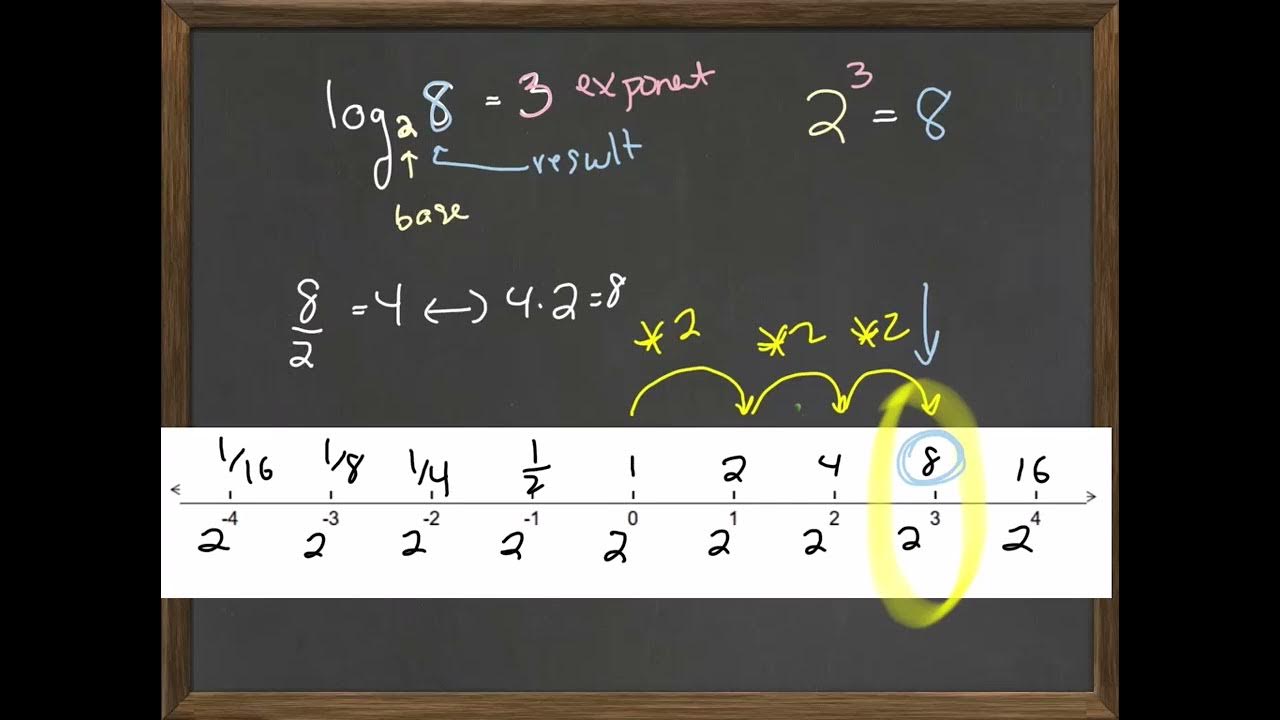 log₂ 8 = 3 exponent
2³ = 8
result
base
8/2 = 4 ↔ 4 · 2 = 8
*2 *2 *2
1/16 1/8 1/4 1/2 1 2 4 8 16
-4 -3 -2 -1 0 1 2 3 4
2 2 2 2 2 2 2 2 2